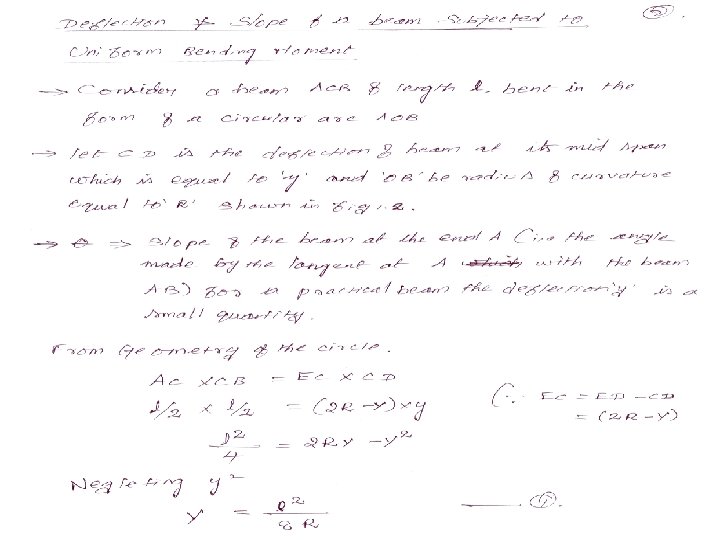 Deflection & Slope of a beam Subjected to (5).
Uniform Bending Moment.
→ Consider a beam ACB of length l, bent in the
form of a circular arc AOB
→ let CD is the deflection of beam at its mid span
which is equal to 'y' and 'OB' be radius of curvature
equal to 'R' shown in fig: 2.
→ θ => Slope of the beam at the end A (i.e the angle
made by the tangent at A with the beam
AB) for a practical beam the deflection 'y' is a
small quantity.
From Geometry of the circle.
AC x CB = EC x CD
l/2 x l/2 = (2R-y) x y (∵ EC = ED - CD
= (2R-Y)
l²/4 = 2RY - Y²
Neglecting y²
Y = l²/8R —— (1).